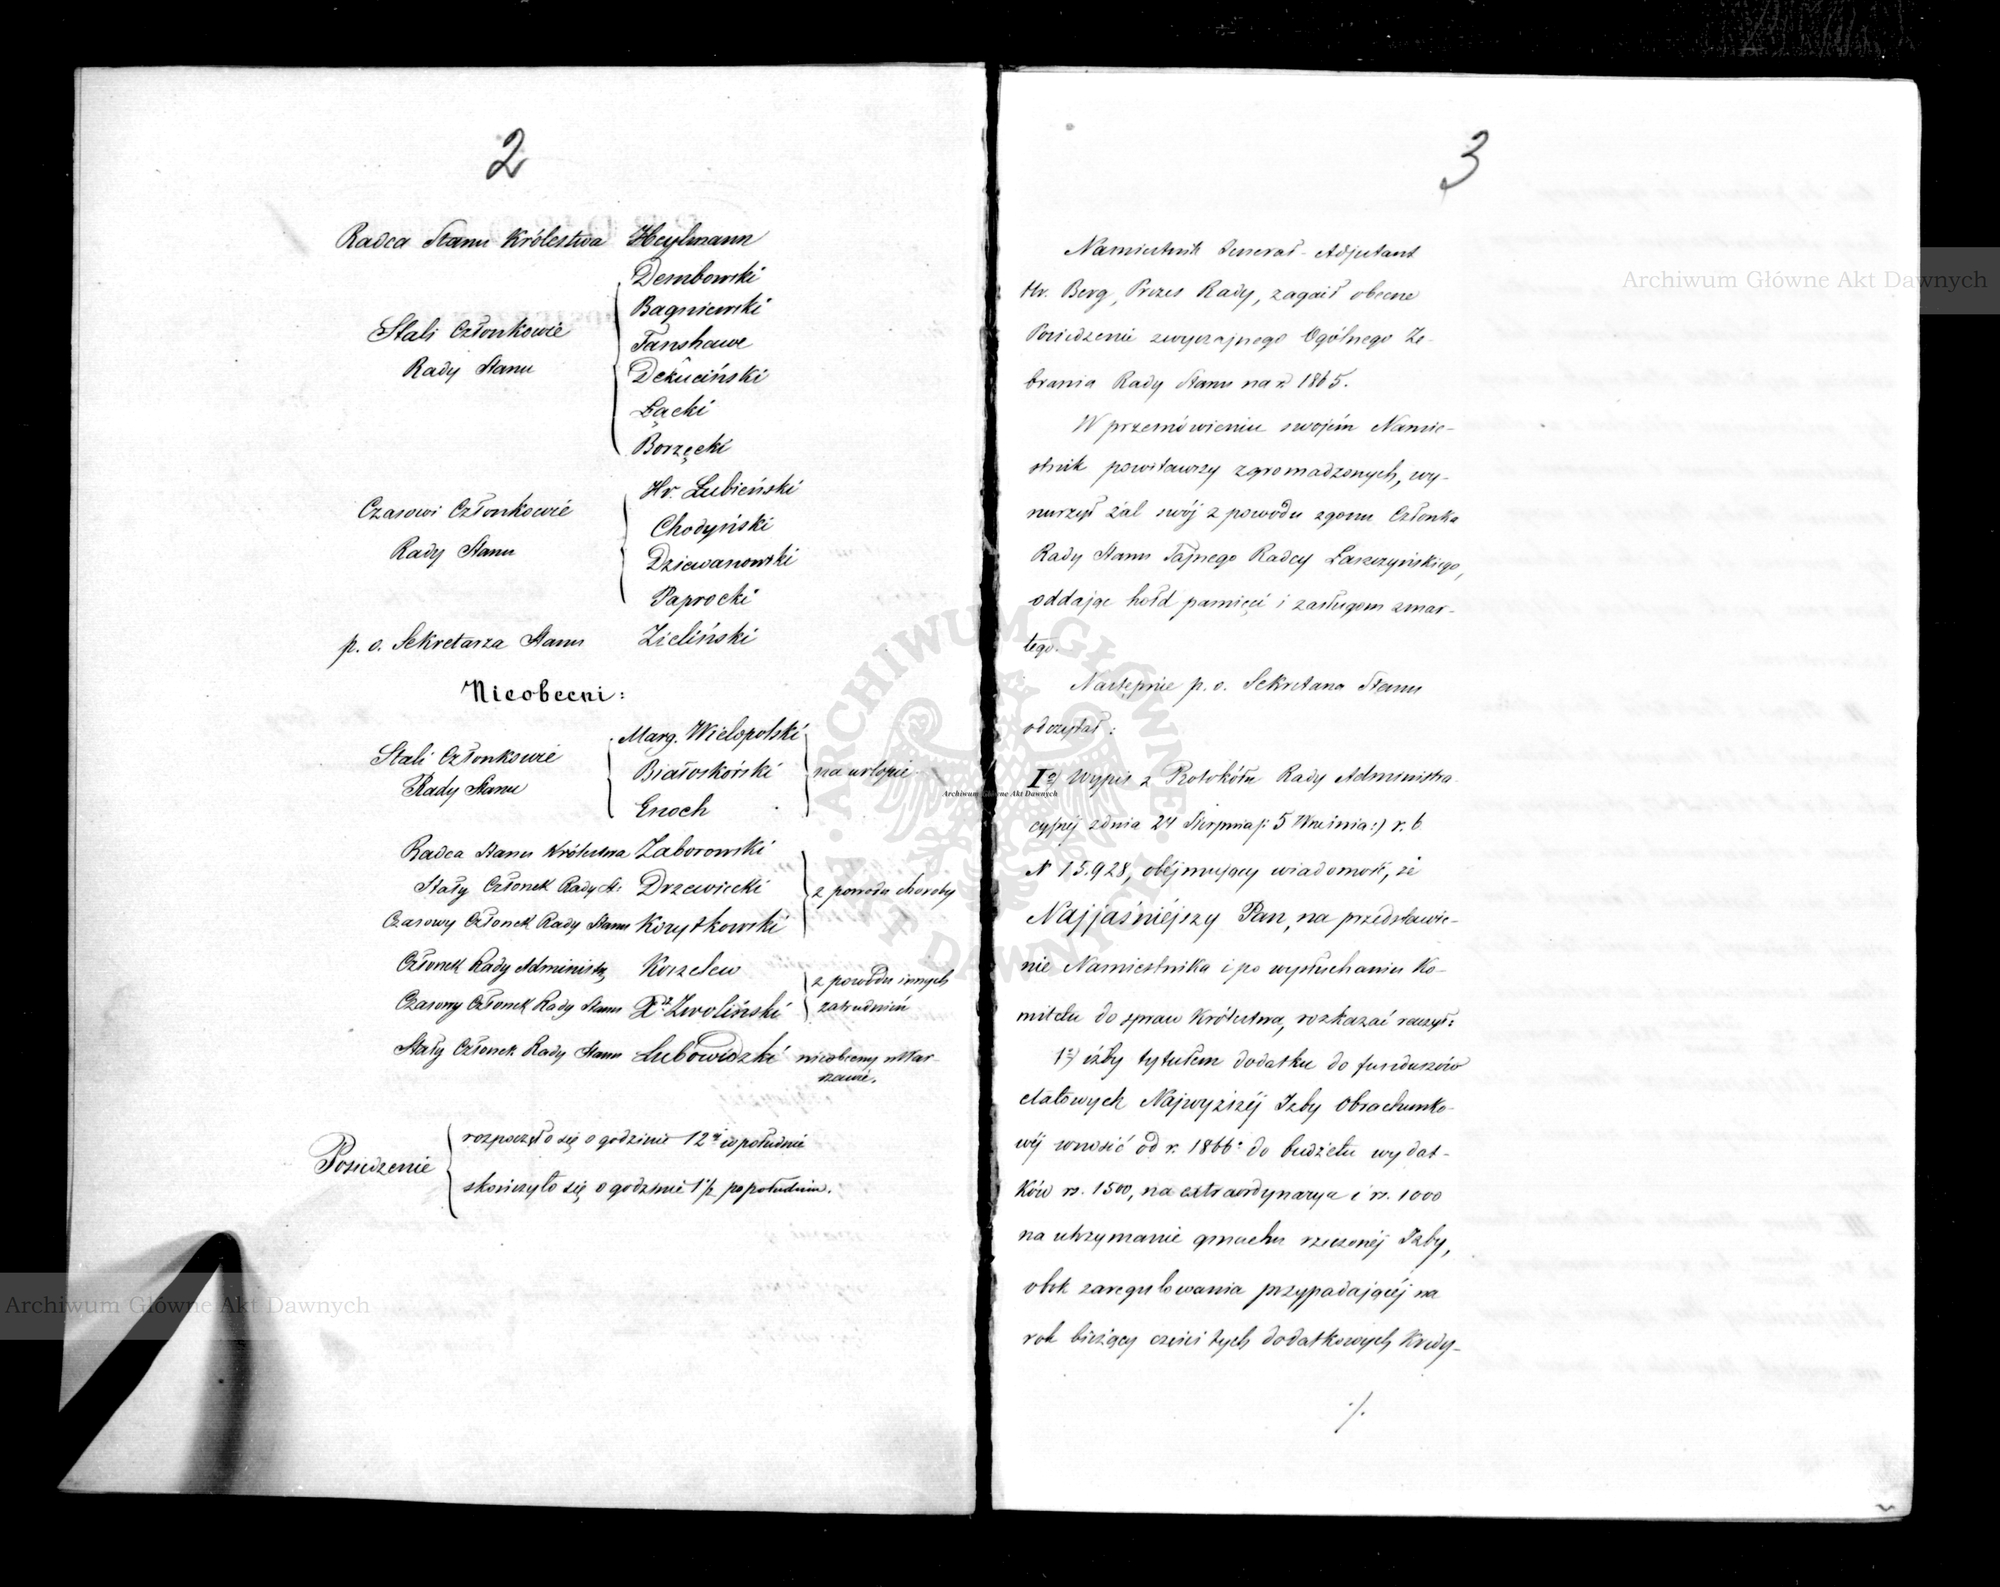 2
Radca Stanu Królestwa Heylmann
Stali Członkowie
Rady Stanu
Dembowski
Bagniewski
Fanshawe
Dekuciński
Łącki
Borzęcki
Czasowi Członkowie
Rady Stanu
Hr. Łubieński
Chodyński
Dziewanowski
Paprocki
p. o. Sekretarza Stanu Zieliński
Nieobecni:
Stali Członkowie
Rady Stanu
Marg. Wielopolski
Białoskórski
Enoch
na urlopie
Radca Stanu Królestwa Zaborowski
Stały Członek Rady St: Drzewiecki
Czasowy Członek Rady Stanu Korytkowski
z powodu choroby
Członek Rady Administr. Koszelew
Czasowy Członek Rady Stanu Xdz. Zwoliński
z powodu innych
zatrudnień
Stały Członek Rady Stanu Lubowidzki nieobecny w War-
szawie.
Posiedzenie
rozpoczęło się o godzinie 12ej w południe
skończyło się o godzinie 1½ popołudniu.
3
Namiestnik Generał-Adjutant
Hr. Berg, Prezes Rady, zagaił obecne
Posiedzenie zwyczajnego Ogólnego Ze-
brania Rady Stanu na r. 1865.
W przemówieniu swojém Namie-
stnik powitawszy zgromadzonych, wy-
nurzył żal swój z powodu zgonu Członka
Rady Stanu Tajnego Radcy Łaszczyńskiego,
oddając hołd pamięci i zasługom zmar-
łego.
Następnie p. o. Sekretarza Stanu
odczytał:
I°/ Wypis z Protokółu Rady Administra-
cyjnéj z dnia 24 Sierpnia /: 5 Września :/ r. b.
N 15.928, obéjmujący wiadomość, że
Najjaśniéjszy Pan, na przedstawie-
nie Namiestnika i po wysłuchaniu Ko-
mitetu do spraw Królestwa, rozkazać raczył:
1°/ iżby tytułem dodatku do funduszów
etatowych Najwyższéj Izby Obrachunko-
wéj wnosić od r. 1866° do budżetu wydat-
ków rs. 1500, na extraordynarya i rs. 1000
na utrzymanie gmachu rzeczonéj Izby,
obok zaregulowania przypadającéj na
rok bieżący części tych dodatkowych Kredy-
./.
Archiwum Główne Akt Dawnych
Archiwum Główne Akt Dawnych
Archiwum Główne Akt Dawnych
ARCHIWUM GŁÓWNE AKT DAWNYCH